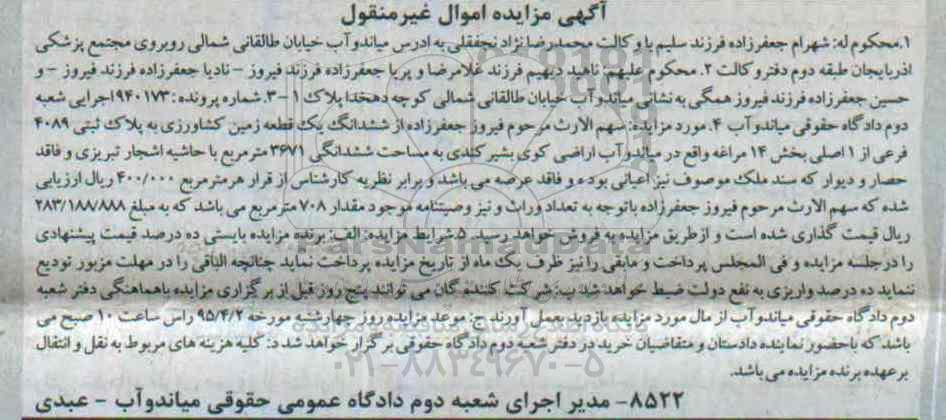 آگهی مزایده اموال غیرمنقول
۱.محکوم له: شهرام جعفرزاده فرزند سلیم با وکالت محمدرضا نژاد نجفقلی به ادرس میاندوآب خیابان طالقانی شمالی روبروی مجتمع پزشکی
اذربایجان طبقه دوم دفتر وکالت ۲. محکوم علیهم: ناهید دیهیم فرزند غلامرضا و پریا جعفرزاده فرزند فیروز - نادیا جعفرزاده فرزند فیروز - و
حسین جعفرزاده فرزند فیروز همگی به نشانی میاندوآب خیابان طالقانی شمالی کوچه دهخدا پلاک ۱ -۳. شماره پرونده: ۹۴۰۱۷۳ اجرایی شعبه
دوم دادگاه حقوقی میاندوآب ۴. مورد مزایده: سهم الارث مرحوم فیروز جعفرزاده از ششدانگ یک قطعه زمین کشاورزی به پلاک ثبتی ۴۰۸۹
فرعی از ۱ اصلی بخش ۱۴ مراغه واقع در میاندوآب اراضی کوی بشیر کندی به مساحت ششدانگی ۳۶۷۱ مترمربع با حاشیه اشجار تبریزی و فاقد
حصار و دیوار که سند ملک موصوف نیز اعیانی بوده و فاقد عرصه می باشد و برابر نظریه کارشناس از قرار هر مترمربع ۴۰۰/۰۰۰ ریال ارزیابی
شده که سهم الارث مرحوم فیروز جعفرزاده باتوجه به تعداد وراث و نیز وصیتنامه موجود مقدار ۷۰۸ مترمربع می باشد که به مبلغ ۲۸۳/۱۸۸/۸۸۸
ریال قیمت گذاری شده است و از طریق مزایده به فروش خواهد رسید. ۵.شرایط مزایده: الف: برنده مزایده بایستی ده درصد قیمت پیشنهادی
را در جلسه مزایده و فی المجلس پرداخت و مابقی را نیز ظرف یک ماه از تاریخ مزایده پرداخت نماید چنانچه الباقی را در مهلت مزبور تودیع
ننماید ده درصد واریزی به نفع دولت ضبط خواهد شد ب: شرکت کننده گان می توانند پنج روز قبل از برگزاری مزایده باهماهنگی دفتر شعبه
دوم دادگاه حقوقی میاندوآب از مال مورد مزایده بازدید بعمل آورند ج: موعد مزایده روز چهارشنبه مورخه ۹۵/۴/۲ راس ساعت ۱۰ صبح می
باشد که باحضور نماینده دادستان و متقاضیان خرید در دفتر شعبه دوم دادگاه حقوقی برگزار خواهد شد د: کلیه هزینه های مربوط به نقل و انتقال
بر عهده برنده مزایده می باشد.
۸۵۲۲- مدیر اجرای شعبه دوم دادگاه عمومی حقوقی میاندوآب - عبدی
ParsNamadData
۰۲۱-۸۸۳۴۹۶۷۰-۵